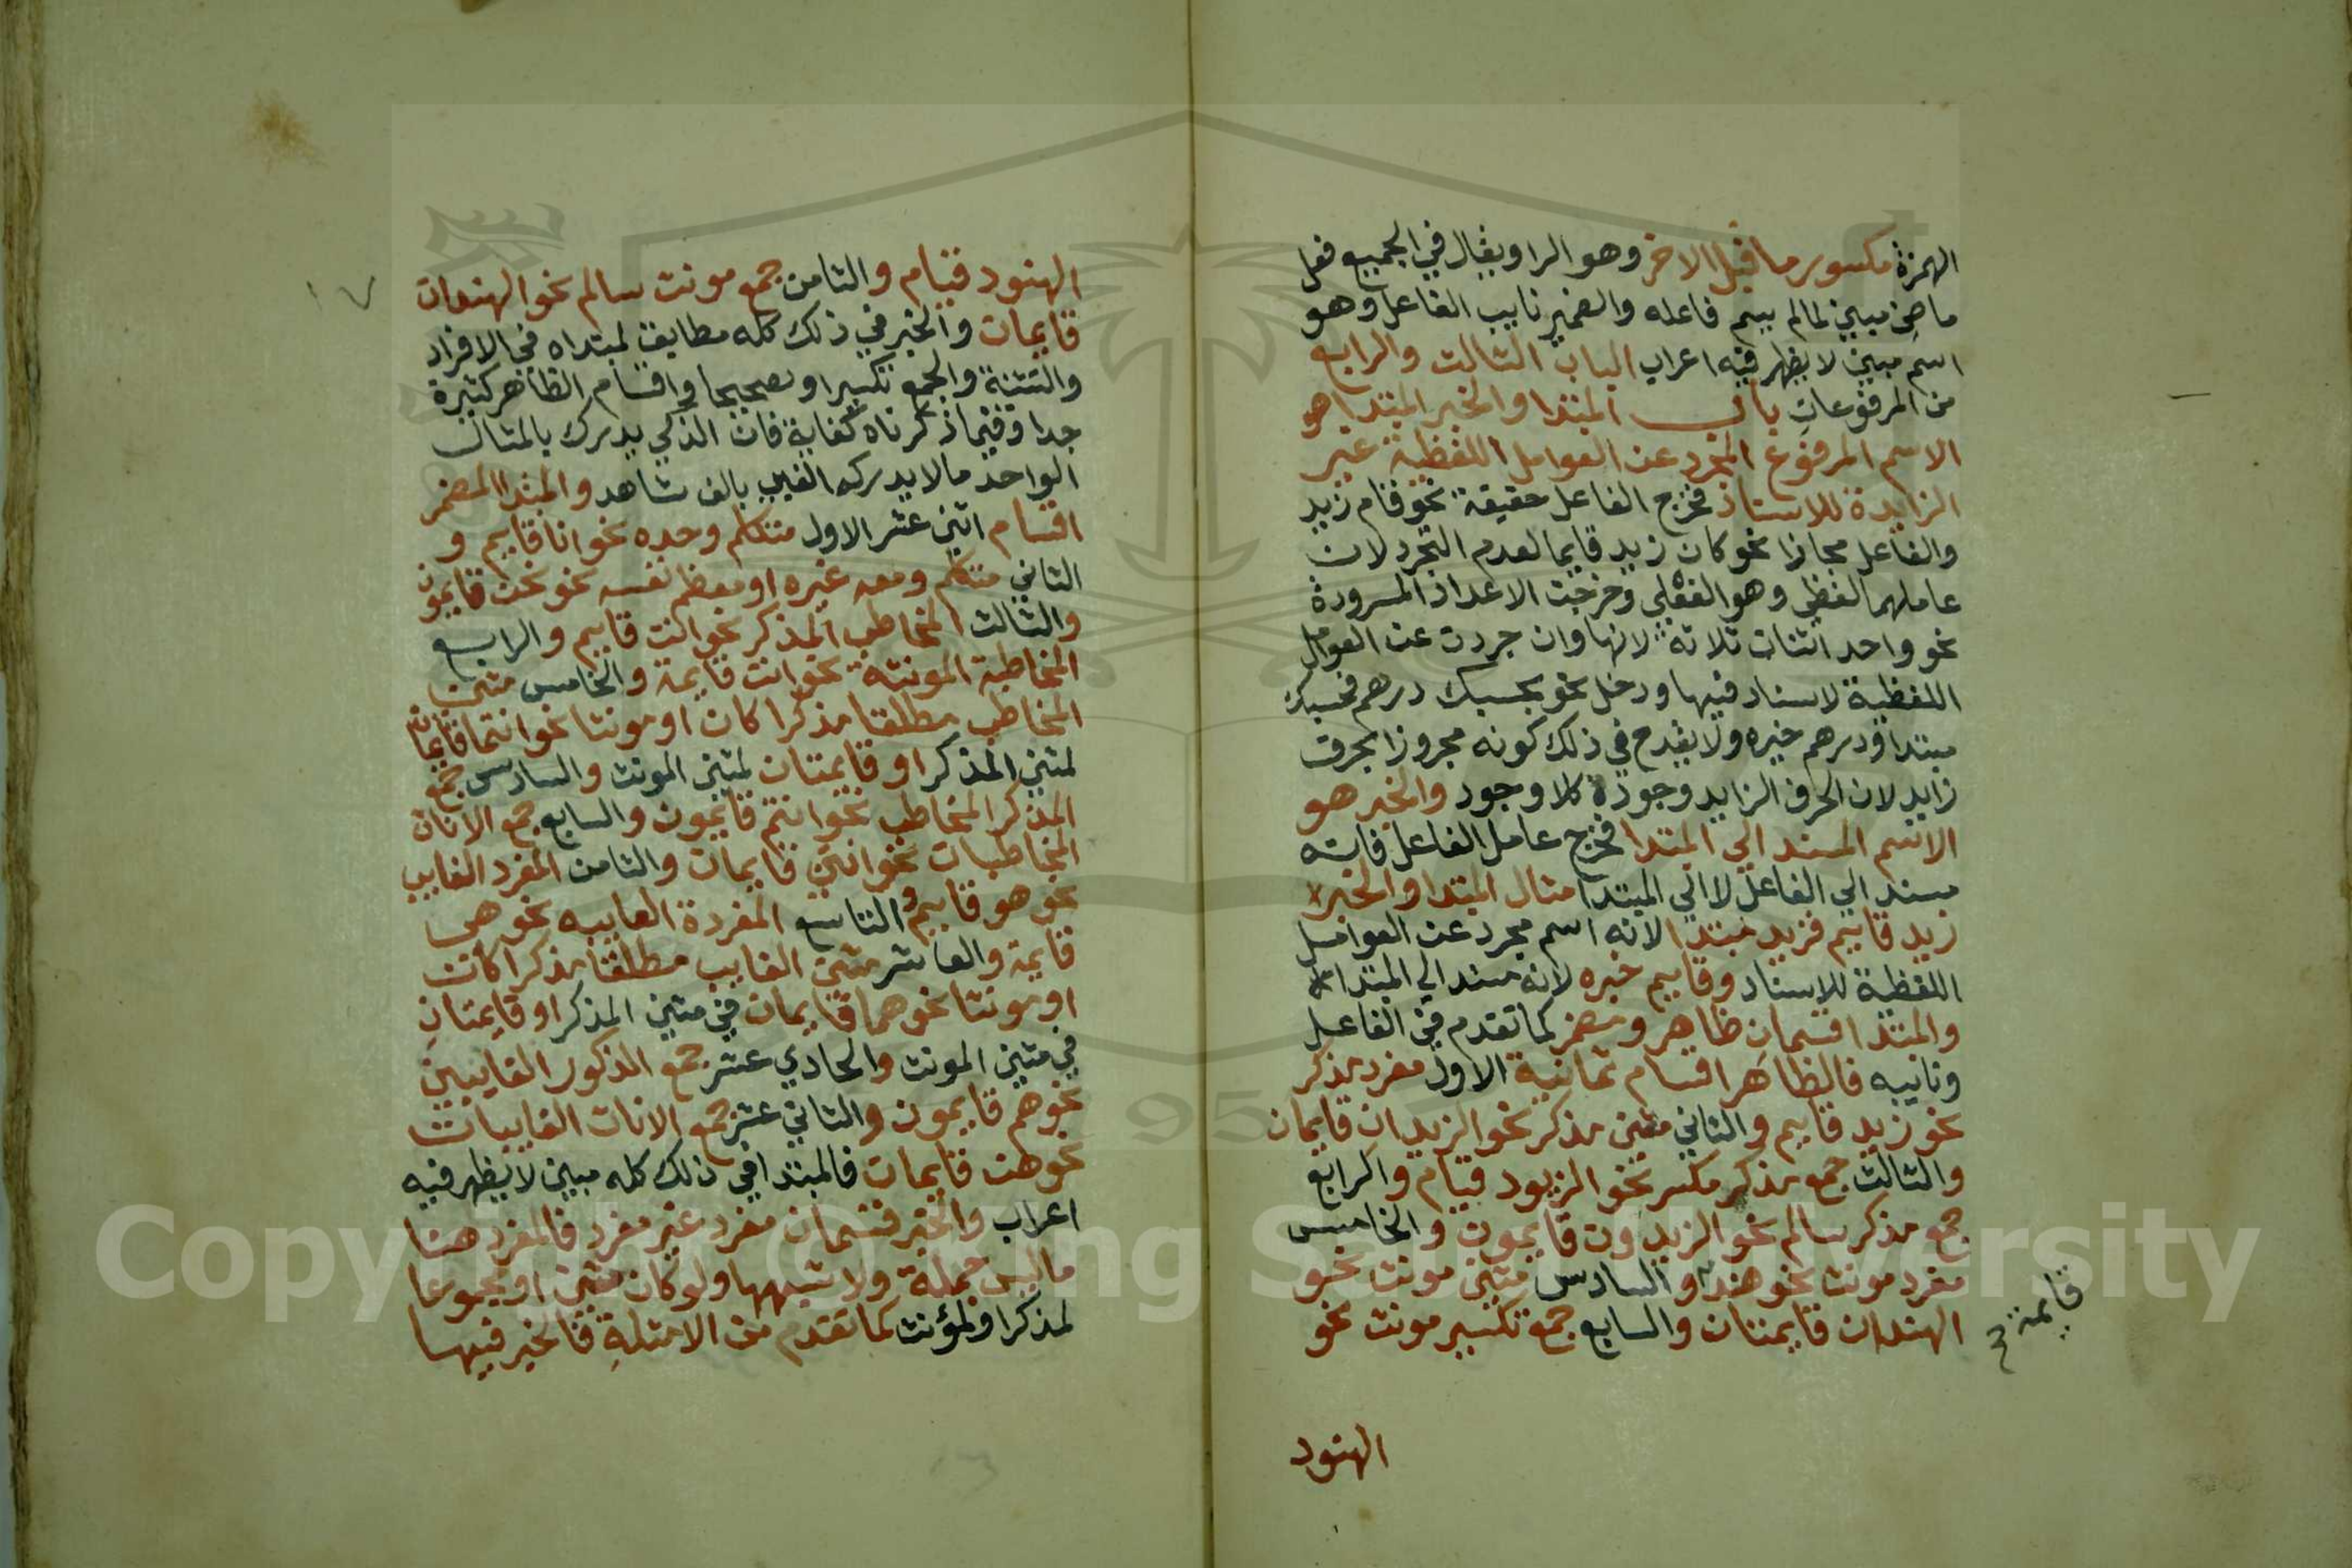 الهمزة مكسور ما قبل الاخر وهو الرا ويقال في الجميع فعل
ماضي مبني لما لم يسم فاعله والضمير نايب الفاعل وهو
اسم مبني لا يظهر فيه اعراب الباب الثالث والرابع
من المرفوعات باب المبتدا والخبر المبتدا هو
الاسم المرفوع المجرد عن العوامل اللفظية غير
الزايدة للاسناد فخرج الفاعل حقيقة نحو قام زيد
والفاعل مجازا نحو كان زيد قايما لعدم التجرد لان
عاملهما لفظي وهو الفعل وخرجت الاعداد المسرودة
نحو واحد اثنان ثلاثة لانها وان جردت عن العوامل
اللفظية لا اسناد فيها ودخل نحو بحسبك درهم فحسبك
مبتدا ودرهم خبره ولا يقدح في ذلك كونه مجرورا بحرف
زايد لان الحرف الزايد وجوده كلا وجود والخبر هو
الاسم المسند الي المبتدا فخرج عامل الفاعل فانه
مسند الي الفاعل لا الي المبتدا مثال المبتدا والخبر
زيد قايم فزيد مبتدا لانه اسم مجرد عن العوامل
اللفظية للاسناد وقايم خبره لانه مسند الي المبتدا
والمبتدا قسمان ظاهر ومضمر كما تقدم في الفاعل
ونايبه فالظاهر اقسام ثمانية الاول مفرد مذكر
نحو زيد قايم والثاني مثني مذكر نحو الزيدان قايمان
والثالث جمع مذكر مكسر نحو الزيود قيام والرابع
جمع مذكر سالم نحو الزيدون قايمون والخامس
مفرد مونث نحو هند والسادس مثني مونث نحو
الهندان قايمتان والسابع جمع تكسير مونث نحو
قايمة
الهنود
١٧
الهنود قيام والثامن جمع مونث سالم نحو الهندات
قايمات والخبر في ذلك كله مطابق لمبتداه في الافراد
والتثنية والجمع تكسيرا وتصحيحا واقسام الظاهر كثيرة
جدا وفيما ذكرناه كفاية فان الذكي يدرك بالمثال
الواحد ما لا يدركه الغبي بالف شاهد والمبتدا المضمر
اقسام اثني عشر الاول متكلم وحده نحو انا قايم و
الثاني متكلم ومعه غيره او معظم نفسه نحو نحن قايمون
والثالث المخاطب المذكر نحو انت قايم والرابع
المخاطبة المونثة نحو انت قايمة والخامس مثني
المخاطب مطلقا مذكرا كان او مونثا نحو انتما قايمان
لمثني المذكر او قايمتان لمثني المونث والسادس جمع
المذكر المخاطب نحو انتم قايمون والسابع جمع الاناث
المخاطبات نحو انتن قايمات والثامن المفرد الغايب
نحو هو قايم التاسع المفردة الغايبه نحو هي
قايمة والعاشر مثني الغايب مطلقا مذكرا كان
او مونثا نحو هما قايمان في مثني المذكر او قايمتان
في مثني المونث والحادي عشر جمع الذكور الغايبين
نحو هم قايمون والثاني عشر جمع الاناث الغايبات
نحو هن قايمات فالمبتدا في ذلك كله مبني لا يظهر فيه
اعراب والخبر قسمان مفرد غير مفرد فالمفرد هنا
ما ليس جملة ولا شبهها ولو كان مثني او مجموعا
لمذكر او لمؤنث كما تقدم من الامثلة فالخبر فيها
Copyright © King Saud University